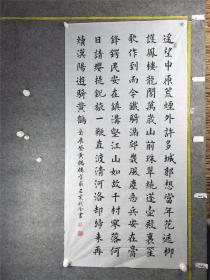 遙望中原荒煙外許多城郭想當年花遮柳
護鳳樓龍閣萬歲山前珠翠繞蓬壺殿裏笙
歌作到而今鐵騎滿郊畿風塵惡兵安在膏
鋒鍔民安在填溝壑江山如故千村寥落何
日請纓提銳旅一鞭直渡清河洛却歸來再
續漢陽遊騎黃鶴 岳飛登黃鶴樓有感 書